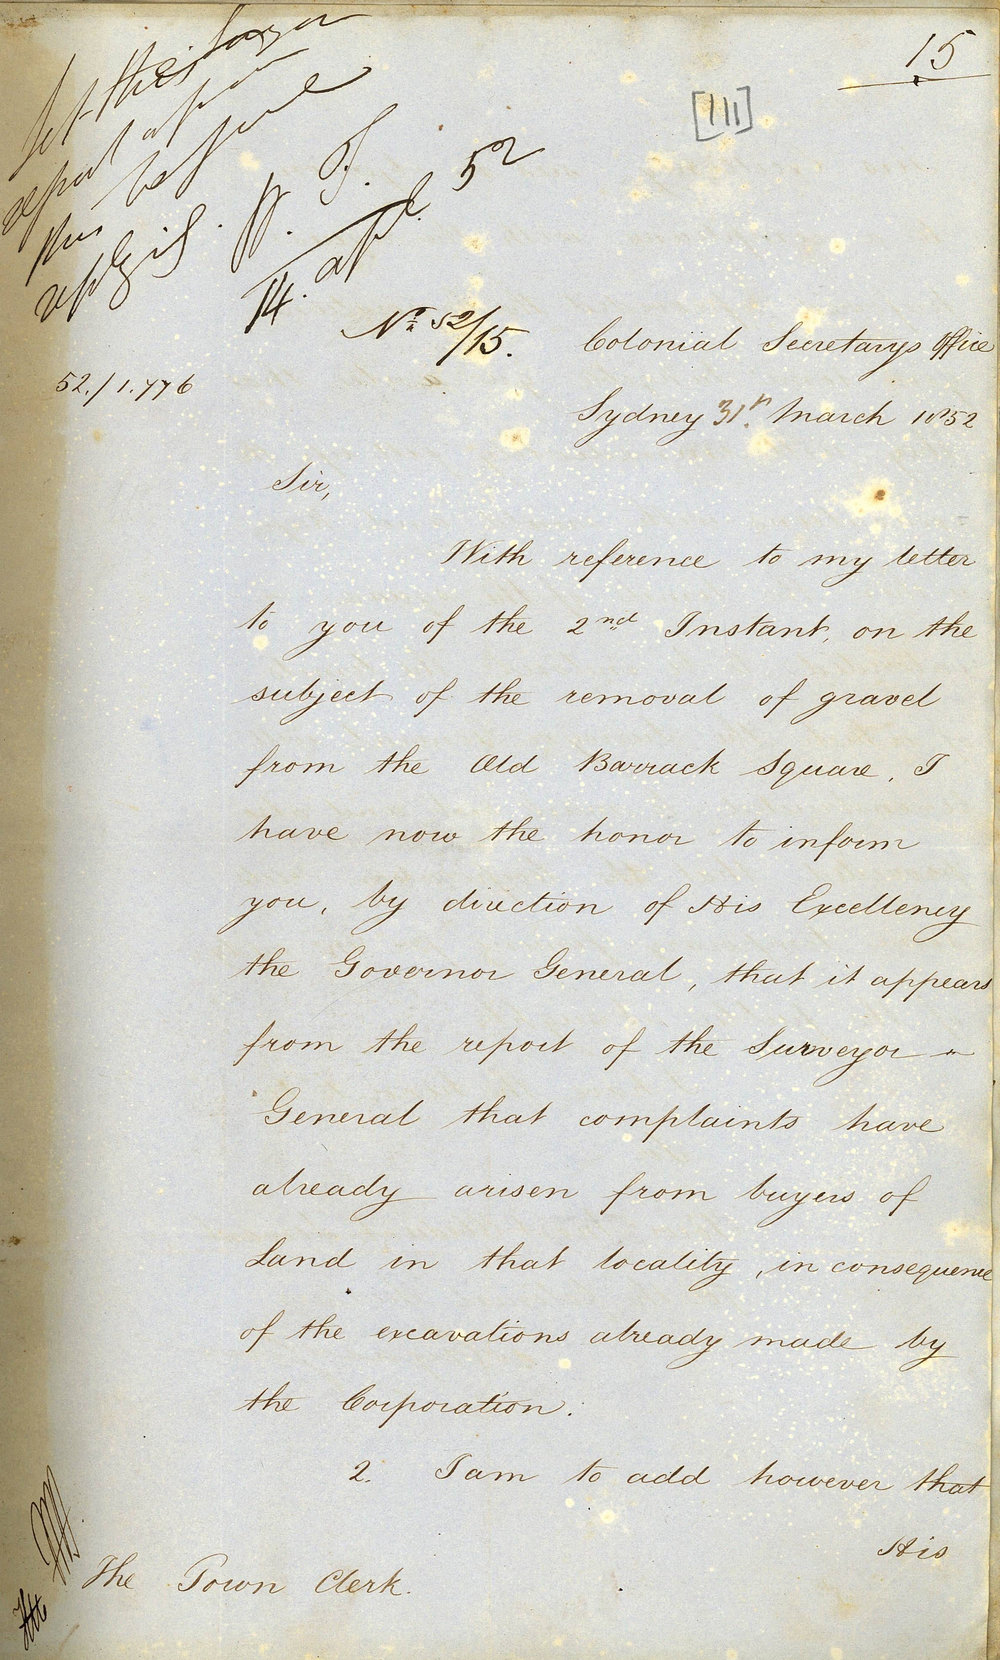 15
[111]
Let this
report upon
this before
reply is. W. F.
14. April. 52
No. 52/15.
Colonial Secretarys Office
52./1.776
Sydney 31st March 1852
Sir,
With reference to my letter
to you of the 2nd Instant, on the
subject of the removal of gravel
from the Old Barrack Square, I
have now the honor to inform
you, by direction of His Excellency
the Governor General, that it appears
from the report of the Surveyor -
General that complaints have
already arisen from buyers of
Land in that locality, in consequence
of the excavations already made by
the Corporation.
2. I am to add however that
His
The Town Clerk.